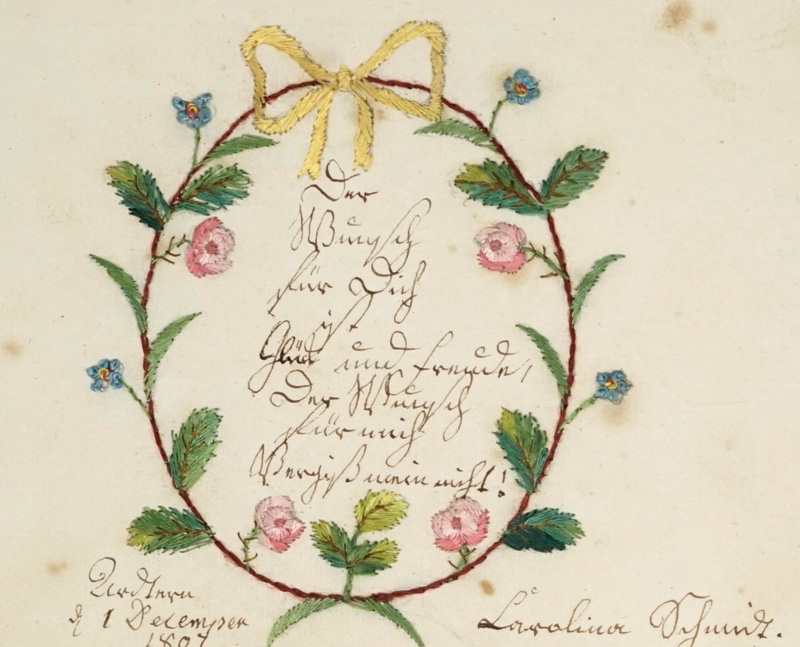 Der
Wunsch
für Dich
ist
Glück und Freude,
Der Wunsch
für mich
Vergiß mein nicht!
d 1 Decemper
Carolina Schmidt.